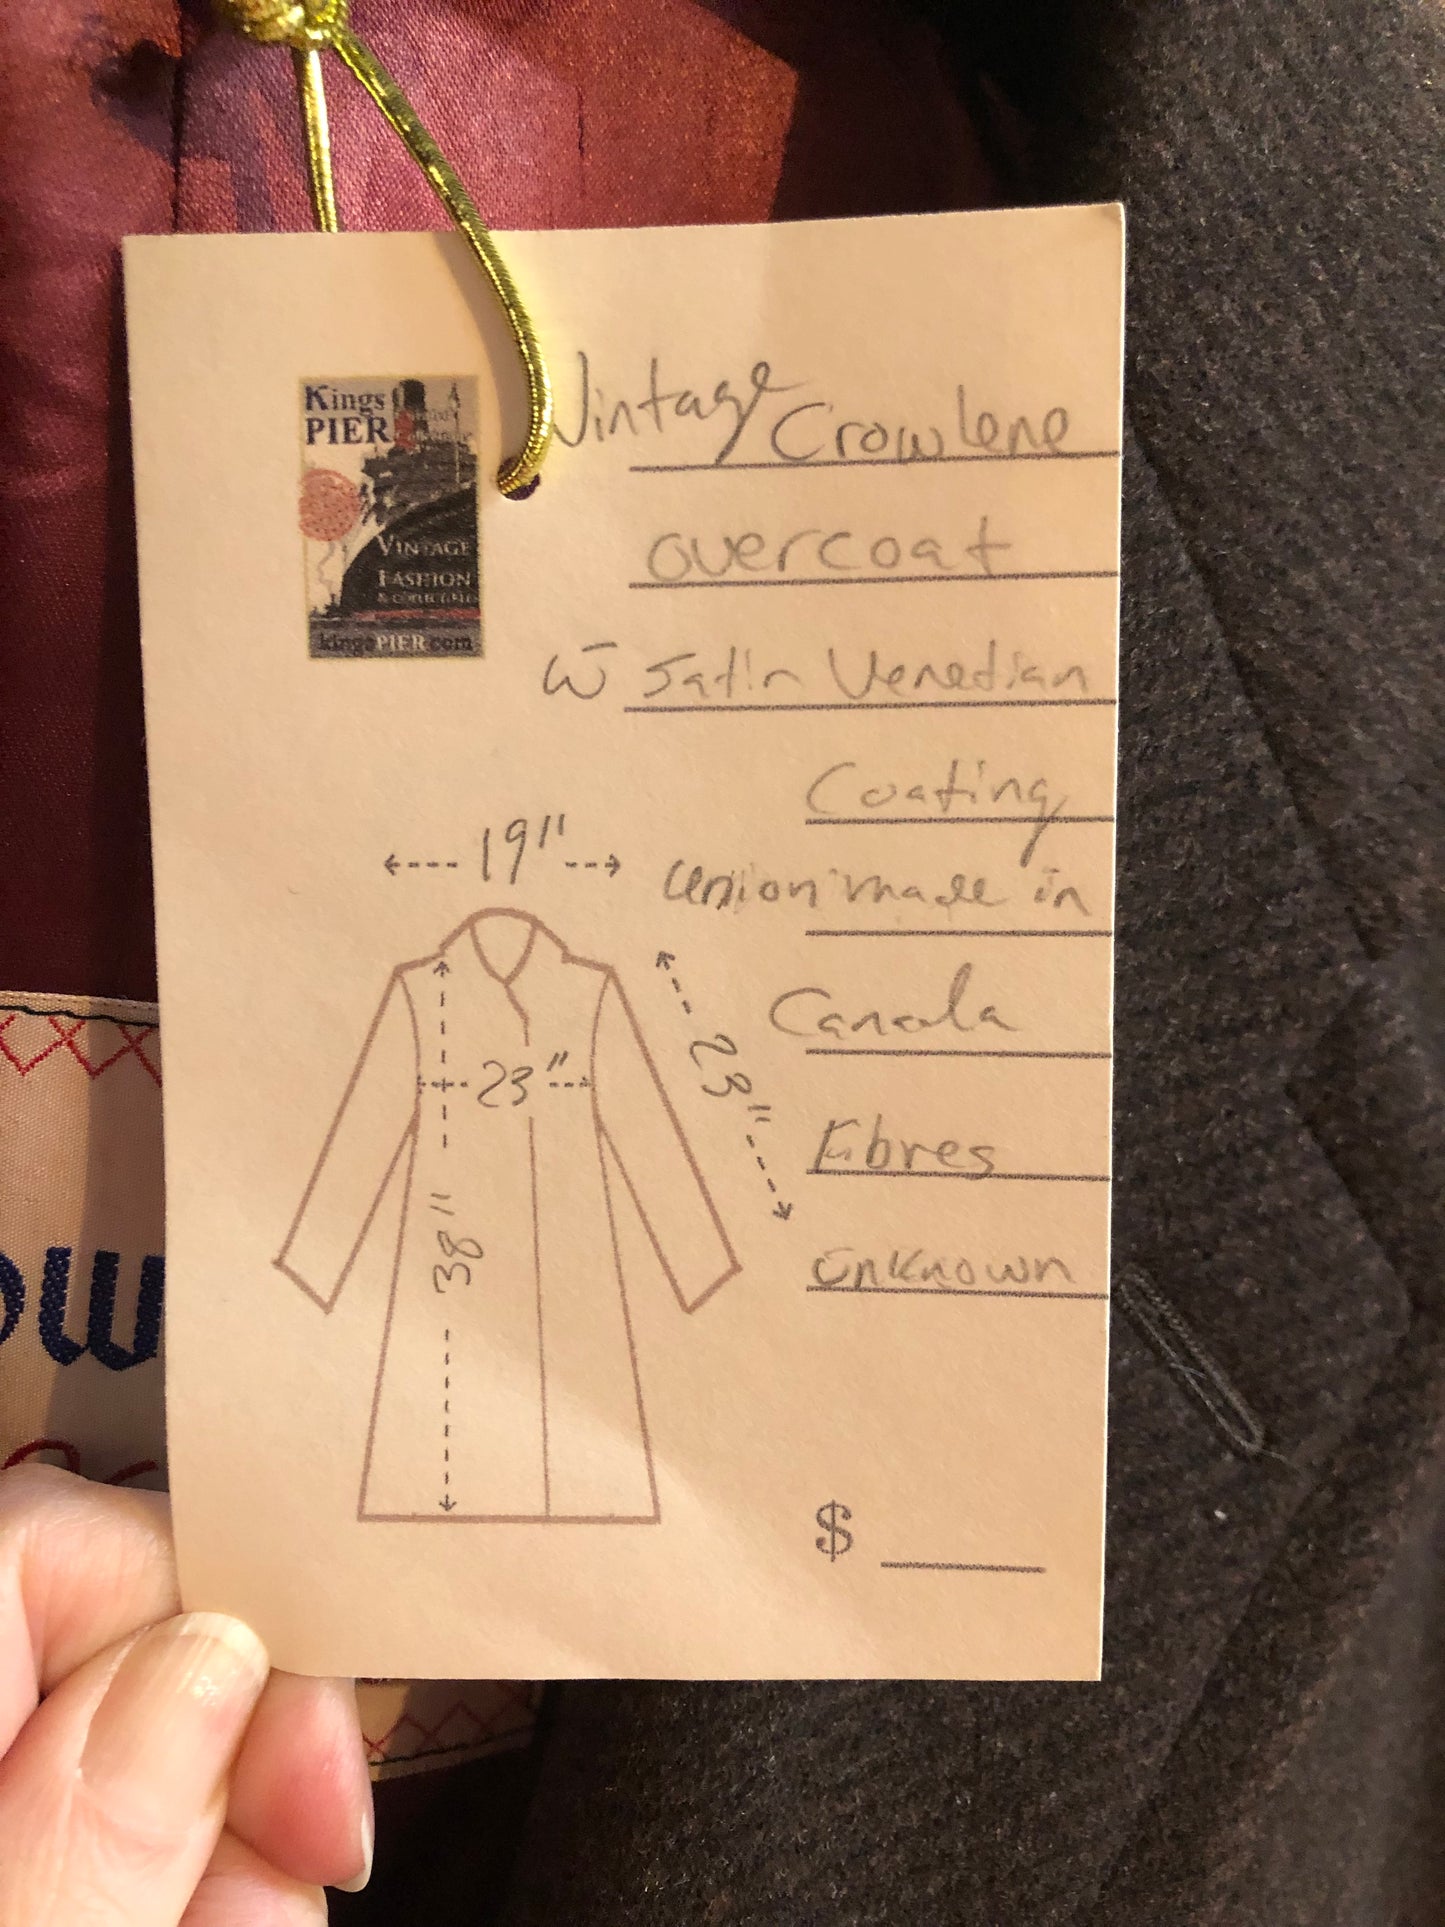 Kings
PIER
VINTAGE
FASHION
& COLLECTABLES
kingsPIER.com
Vintage Crowlene
overcoat
w̄ Satin Venetian
Coating
union made in
Canada
Fibres
unknown
19"
23"
23"
38"
$
ow